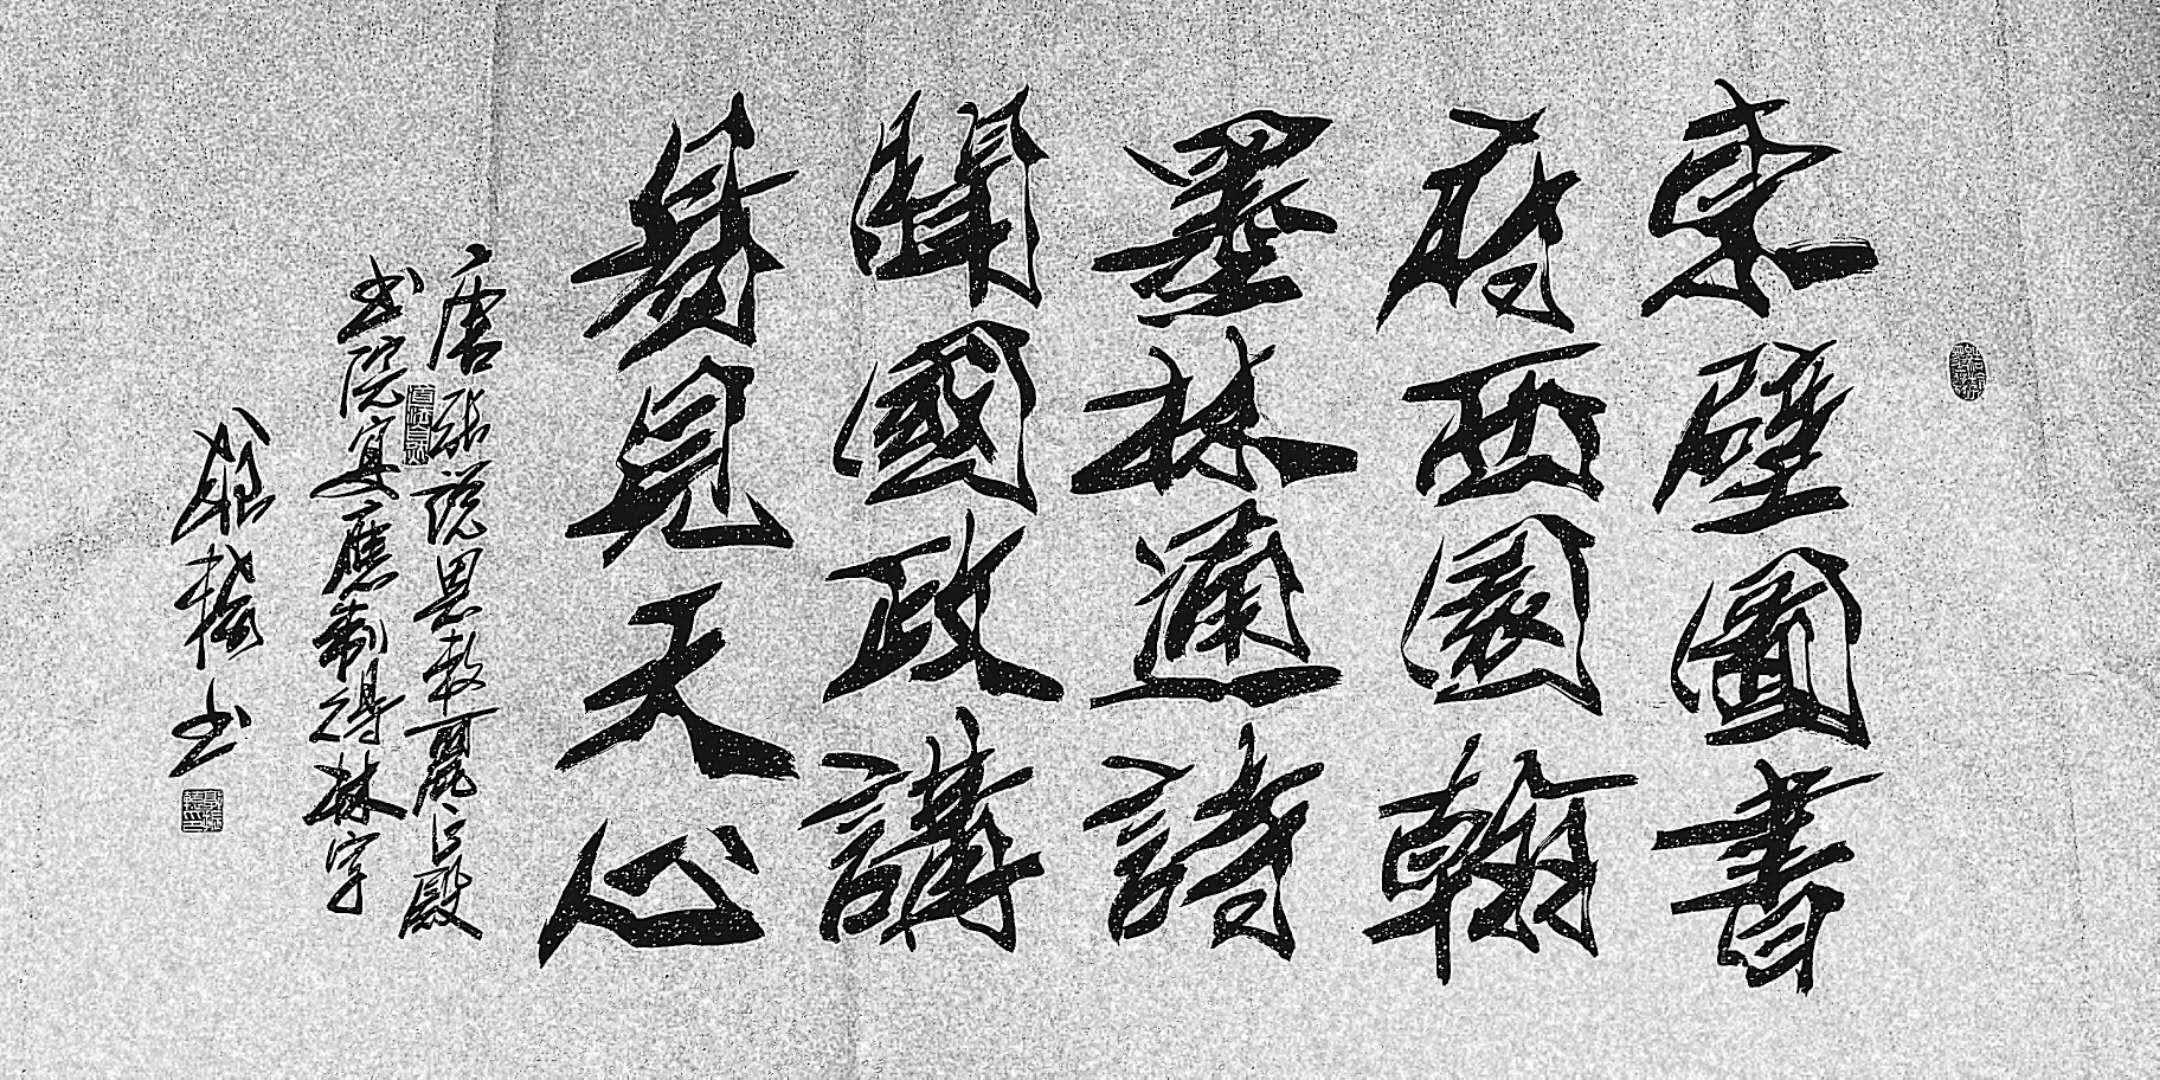 東壁圖書
府西園翰
墨林通詩
聞國政講
易見天心
唐張説恩敕麗正殿
书院宴應制得林字
书